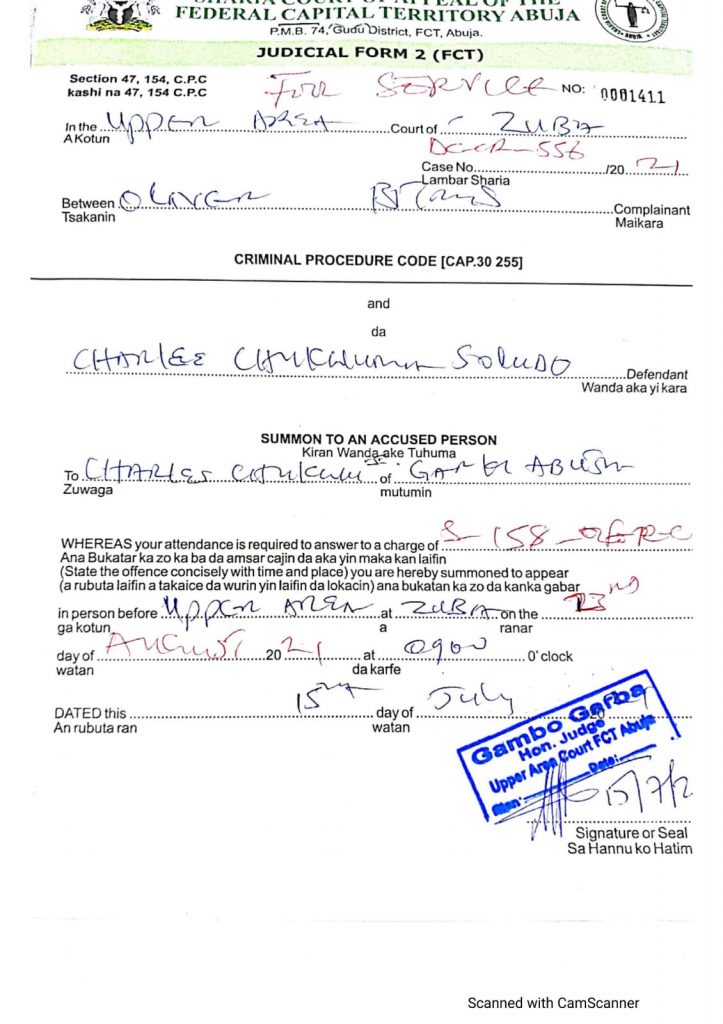 SHARIA COURT OF APPEAL OF THE
FEDERAL CAPITAL TERRITORY ABUJA
P.M.B. 74, Gudu District, FCT, Abuja.
JUDICIAL FORM 2 (FCT)
Section 47, 154, C.P.C
kashi na 47, 154 C.P.C
For Service NO: 0001411
In the Upper Area Court of Zuba
A Kotun
Case No. DC-CR-556/20 21
Lambar Sharia
Between Oliver Complainant
Tsakanin Maikara
CRIMINAL PROCEDURE CODE [CAP.30 255]
and
da
CHARLEE CHUKWUMA SOLUDO Defendant
Wanda aka yi kara
SUMMON TO AN ACCUSED PERSON
Kiran Wanda ake Tuhuma
To CHARLES of GARKI ABUJA
Zuwaga mutumin
WHEREAS your attendance is required to answer to a charge of S-158
Ana Bukatar ka zo ka ba da amsar cajin da aka yin maka kan laifin
(State the offence concisely with time and place) you are hereby summoned to appear
(a rubuta laifin a takaice da wurin yin laifin da lokacin) ana bukatan ka zo da kanka gabar
in person before Upper Area at ZUBA on the 23
ga kotun a ranar
day of August 20 21 at 0900 O' clock
watan da karfe
DATED this 15th day of July 20
An rubuta ran watan
Gambo Garba
Hon. Judge
Upper Area Court FCT Abuja
Sign: Date:
15/7/2
Signature or Seal
Sa Hannu ko Hatim
Scanned with CamScanner